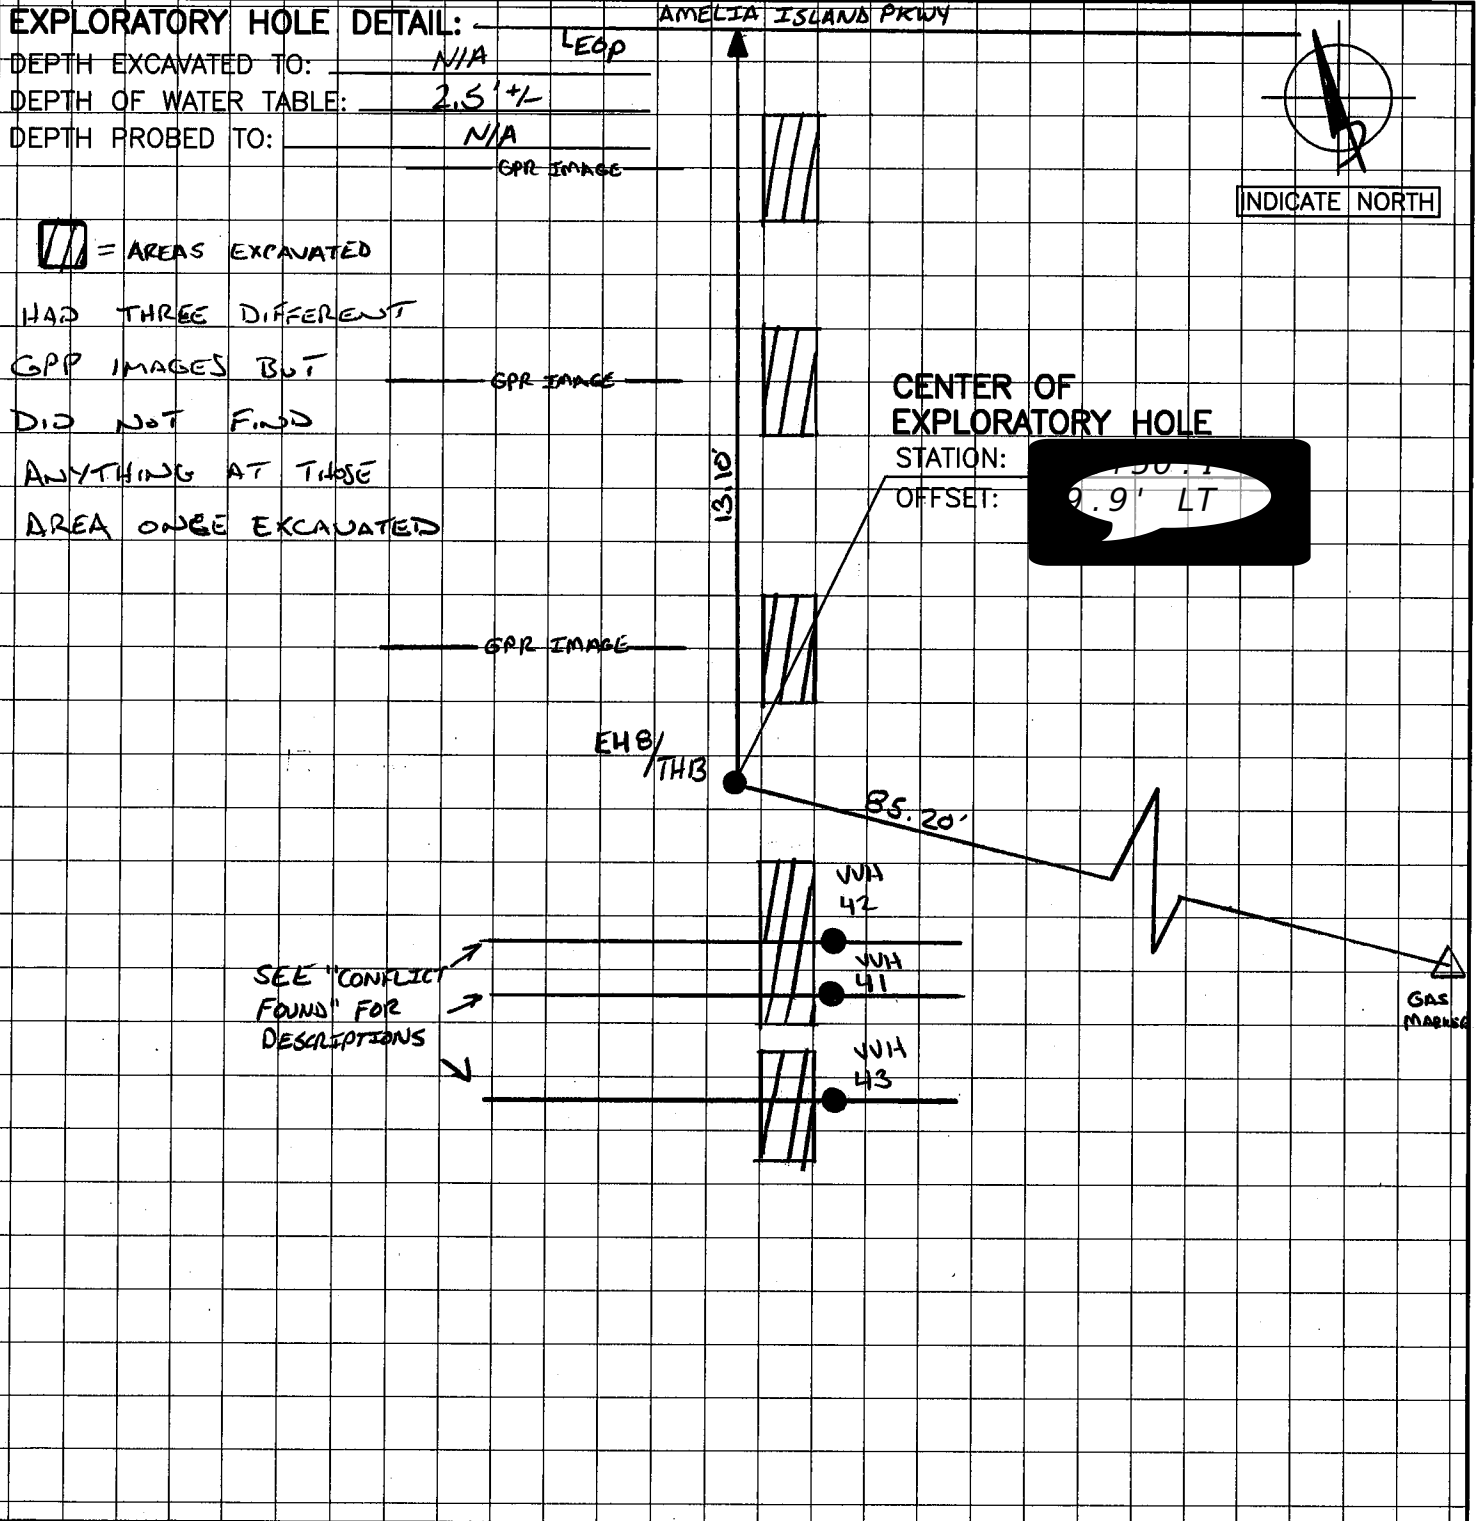 AMELIA ISLAND PKWY
EXPLORATORY HOLE DETAIL:
EOP
DEPTH EXCAVATED TO: N/A
DEPTH OF WATER TABLE: 2.5' +/-
DEPTH PROBED TO: N/A
GPR IMAGE
INDICATE NORTH
= AREAS EXCAVATED
HAD THREE DIFFERENT
GPR IMAGES BUT
DID NOT FIND
ANYTHING AT THOSE
AREA ONCE EXCAVATED
GPR IMAGE
CENTER OF
EXPLORATORY HOLE
STATION:
OFFSET: 9.9' LT
13.10'
GPR IMAGE
EH 8/
TH13
85.20'
VVH
42
VVH
41
SEE "CONFLICT
FOUND" FOR
DESCRIPTIONS
GAS
MARKER
VVH
43